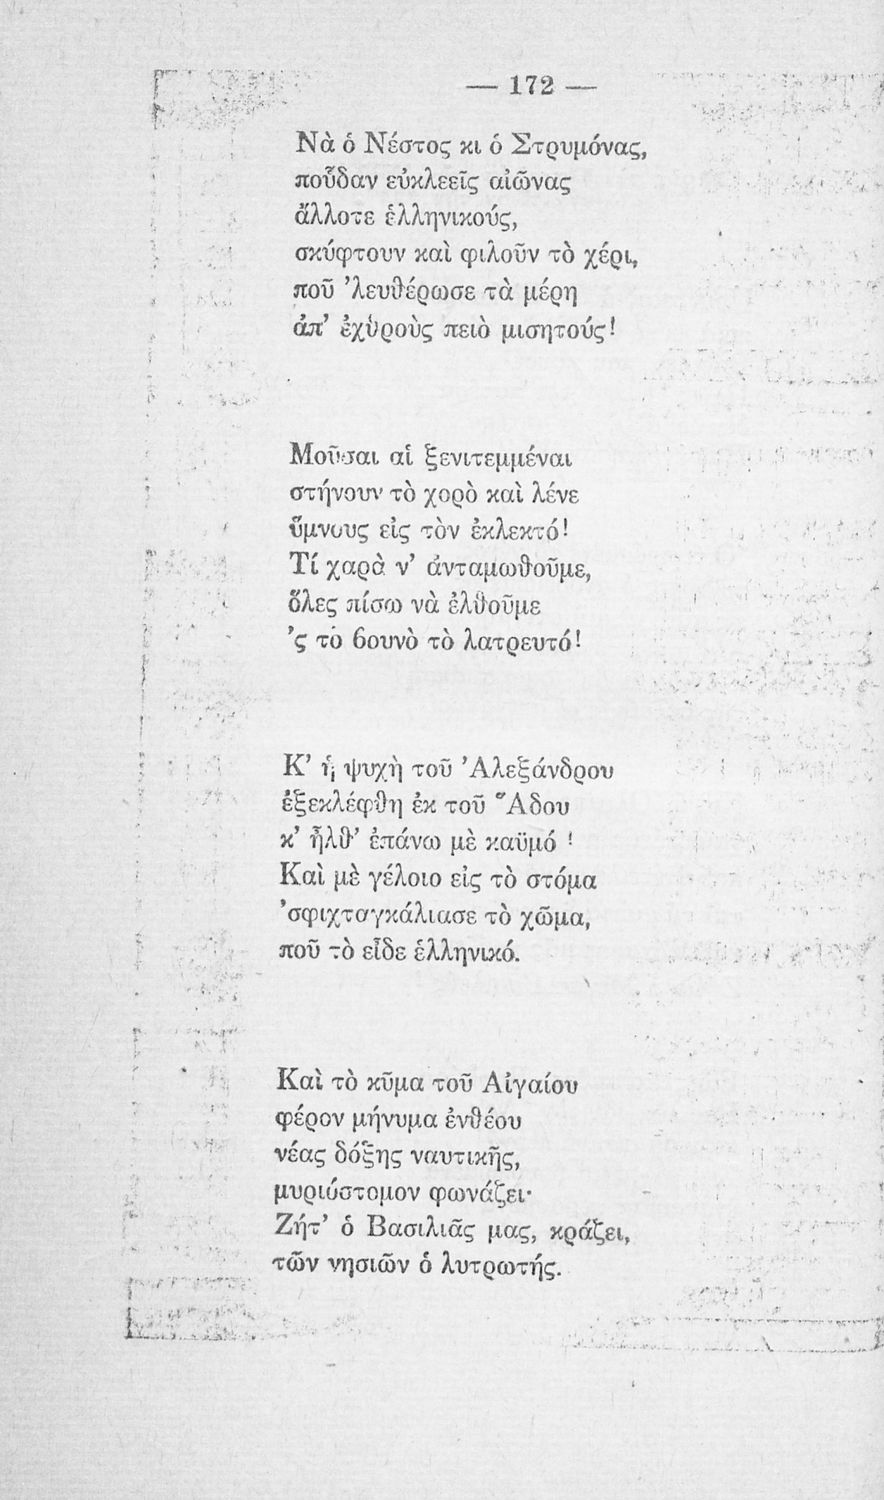 — 172 —
Νὰ ὁ Νέστος κι ὁ Στρυμόνας,
ποὖδαν εὐκλεεῖς αἰῶνας
ἄλλοτε ἑλληνικούς,
σκύφτουν καὶ φιλοῦν τὸ χέρι,
ποῦ ’λευθέρωσε τὰ μέρη
ἀπ’ ἐχθροὺς πειὸ μισητούς!
Μοῦσαι αἱ ξενιτεμμέναι
στήνουν τὸ χορὸ καὶ λένε
ὕμνους εἰς τὸν ἐκλεκτό!
Τί χαρὰ ν’ ἀνταμωθοῦμε,
ὅλες πίσω νὰ ἐλθοῦμε
’ς τὸ βουνὸ τὸ λατρευτό!
Κ’ ἡ ψυχὴ τοῦ Ἀλεξάνδρου
ἐξεκλέφθη ἐκ τοῦ Ἅδου
κ’ ἦλθ’ ἐπάνω μὲ καϋμό !
Καὶ μὲ γέλοιο εἰς τὸ στόμα
’σφιχταγκάλιασε τὸ χῶμα,
ποῦ τὸ εἶδε ἑλληνικό.
Καὶ τὸ κῦμα τοῦ Αἰγαίου
φέρον μήνυμα ἐνθέου
νέας δόξης ναυτικῆς,
μυριόστομον φωνάζει·
Ζήτ’ ὁ Βασιλιᾶς μας, κράζει,
τῶν νησιῶν ὁ λυτρωτής.